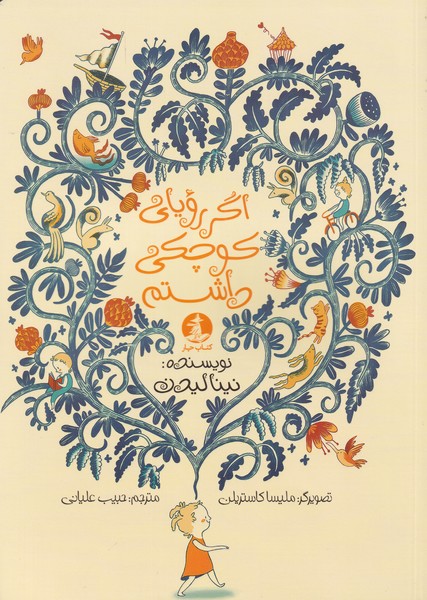 اگر رؤیای
کوچکی
داشتم
کتاب خیار
نویسنده:
نینا لیدن
تصویرگر: ملیسا کاسترییلن
مترجم: حبیب علیانی